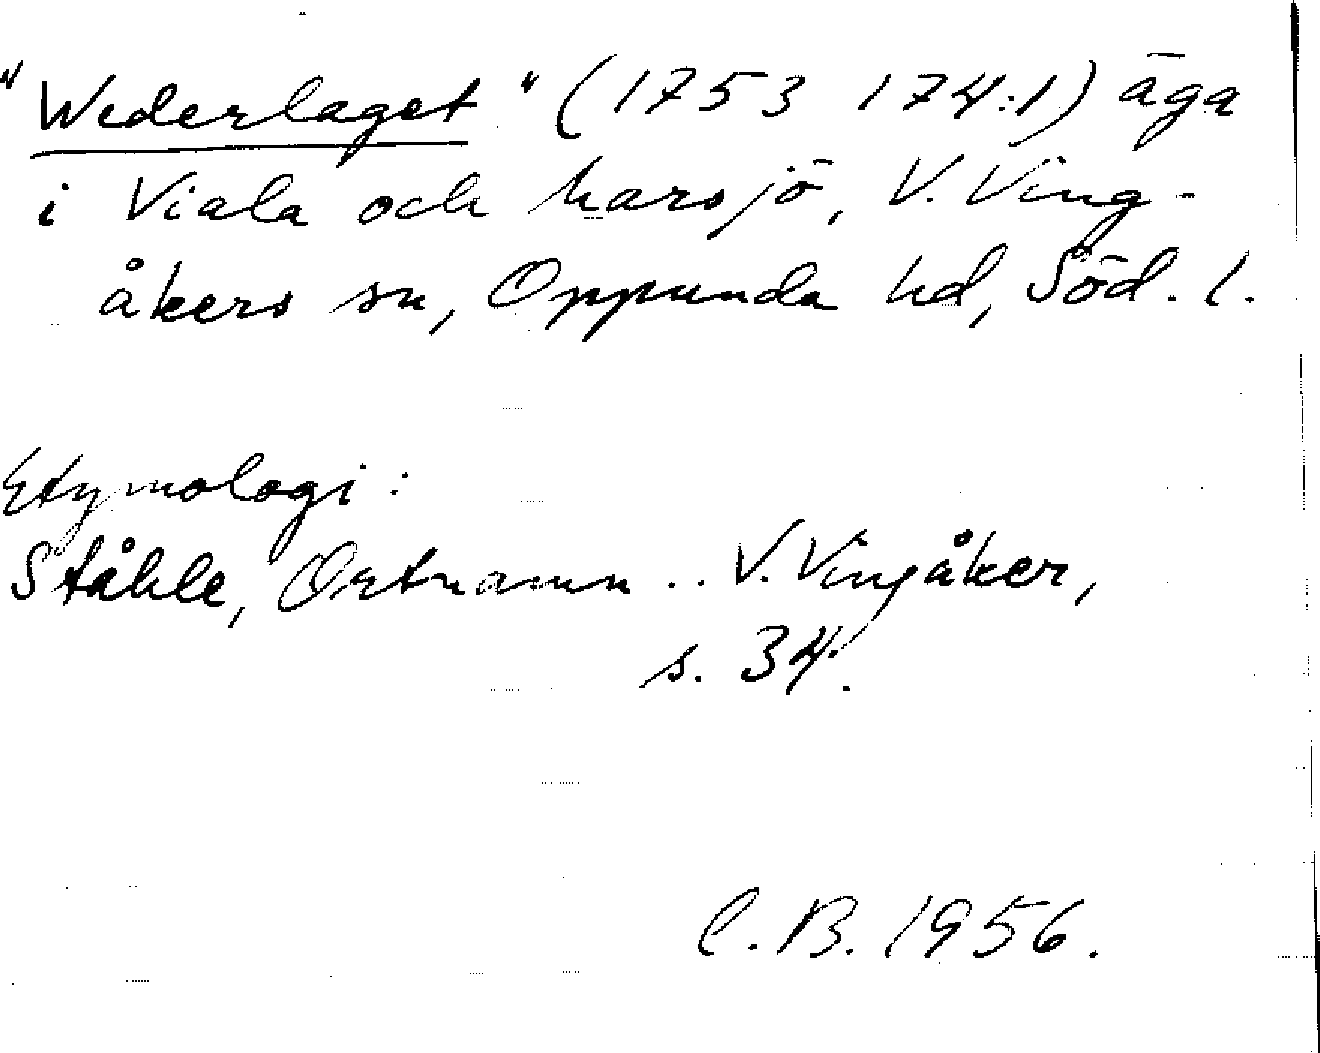 "Wederlaget" (1753 174:1) äga
i Viala och harsjö, V. Ving-
åkers sn, Oppunda hd, Söd. l.
Etymologi:
Ståhle, Ortnamn .. V. Vingåker,
s. 34.
C. B. 1956.